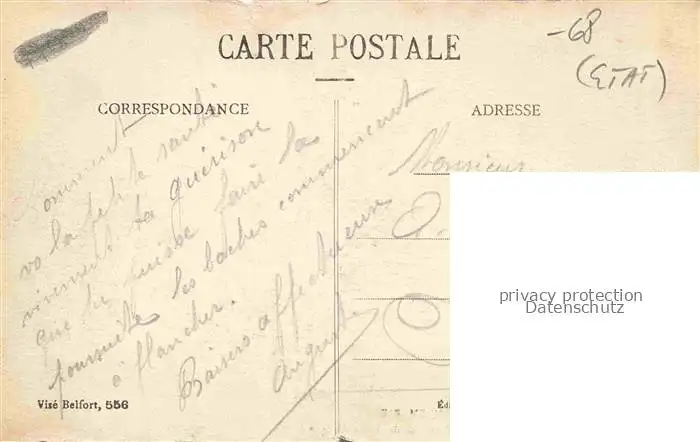 -68
(ETAT)
CARTE POSTALE
CORRESPONDANCE
ADRESSE
Comment
va la petite santé
vivement ta guérison
que tu puisse faire la
poursuite les boches commencent
à flancher.
Baisers affectueux
Auguste
Monsieur
privacy protection
Datenschutz
Visé Belfort, 556
Éd